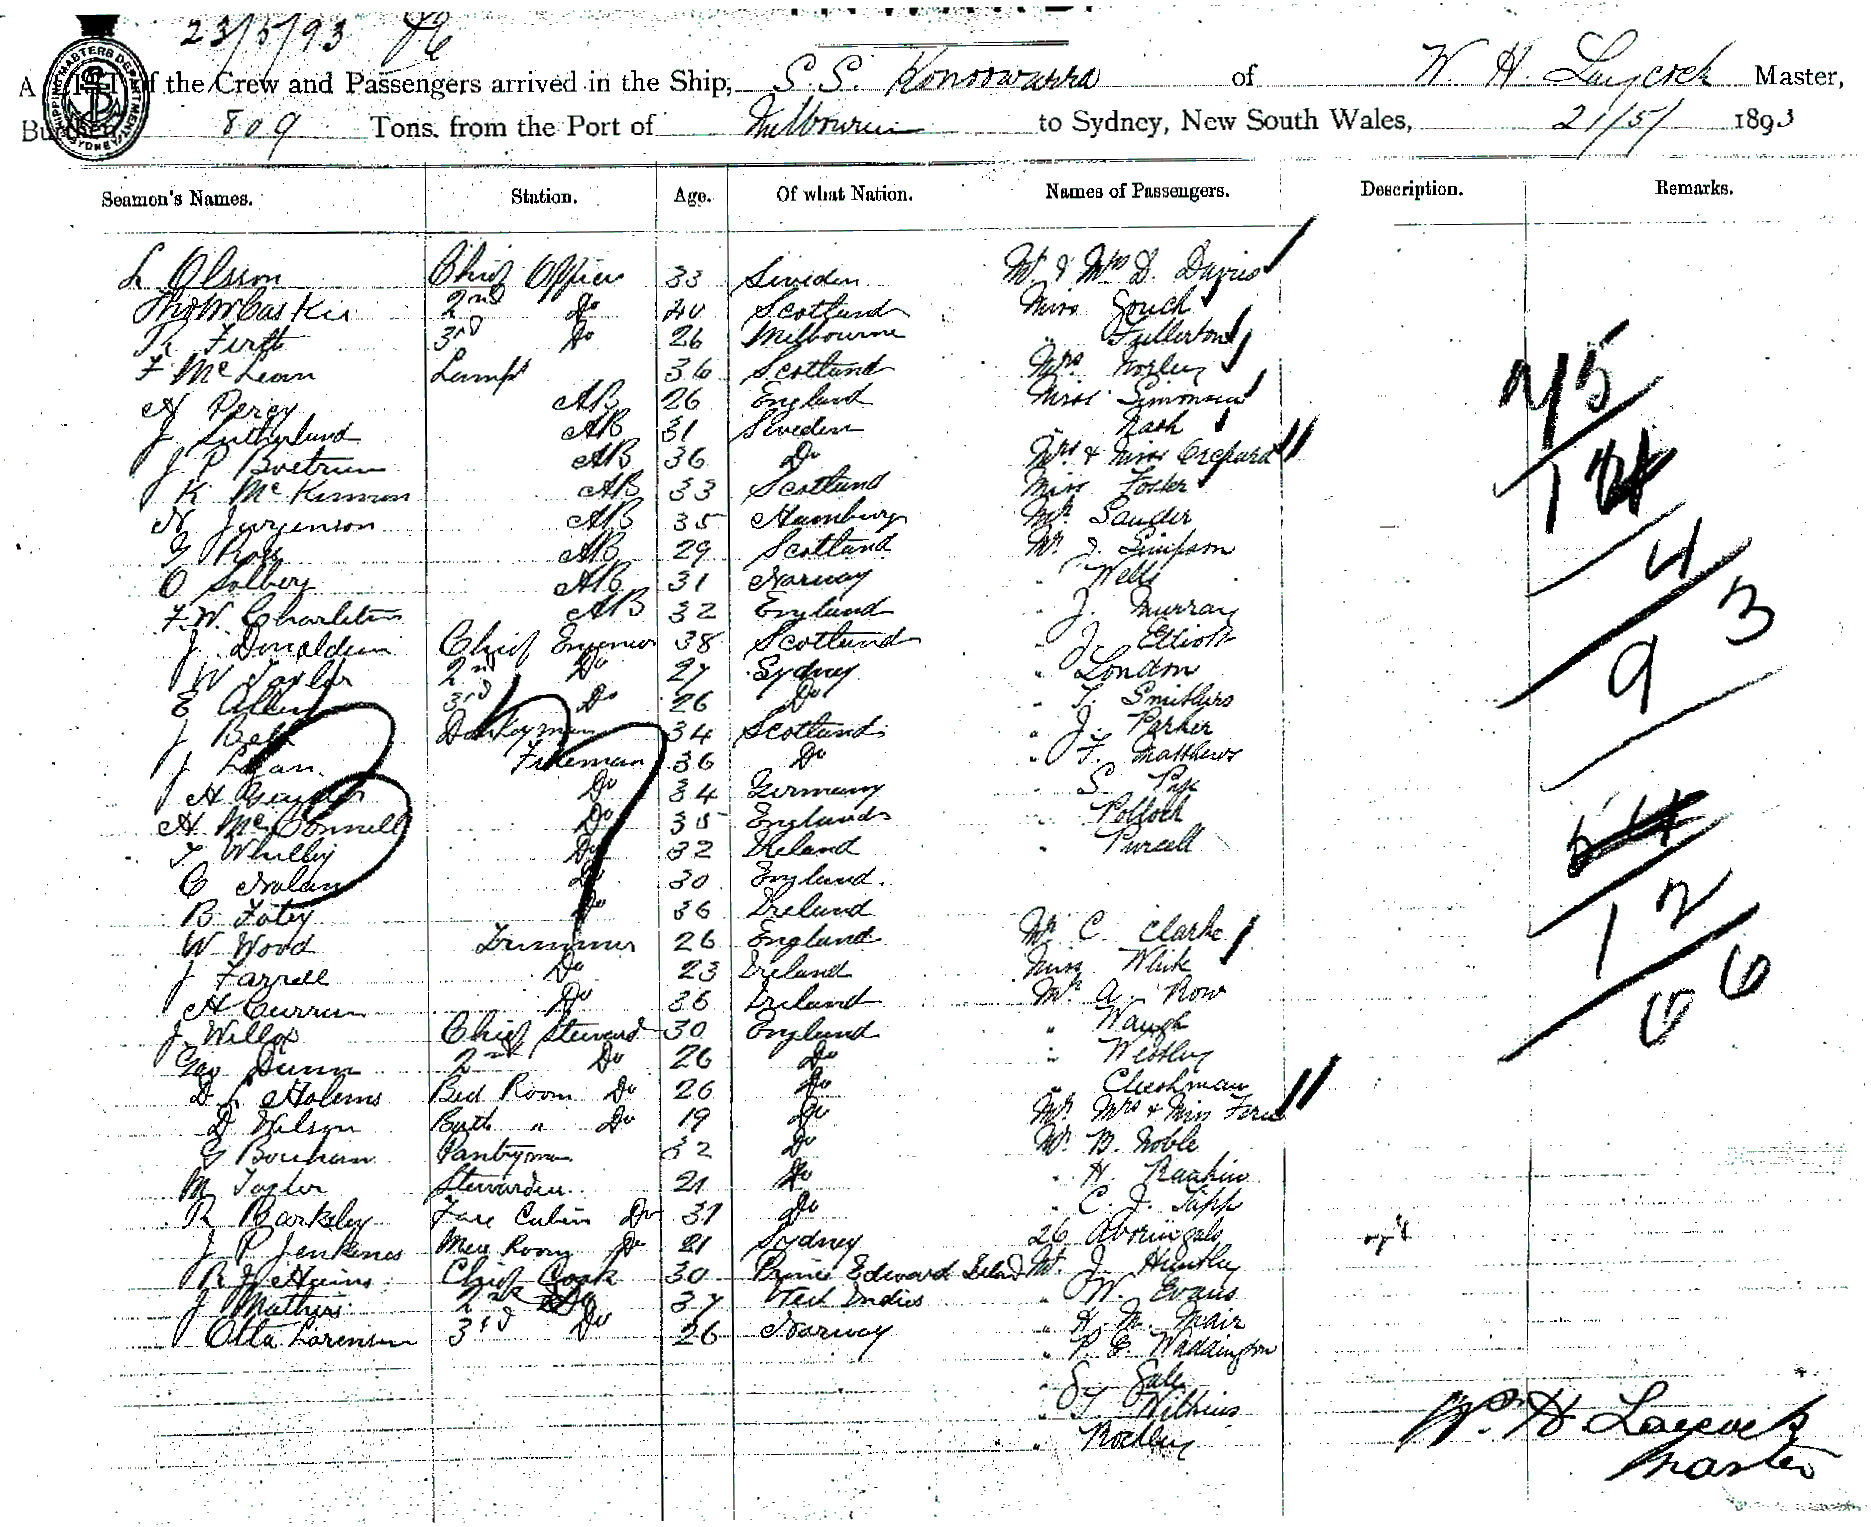 INWARD.
23/5/93
A LIST of the Crew and Passengers arrived in the Ship, S.S. Konoowarra of W. H. Laycock Master,
Burthen 809 Tons. from the Port of Melbourne to Sydney, New South Wales, 21/5/ 1893
SHIPPING MASTERS DEPARTMENT SYDNEY
Seamen's Names. Station. Age. Of what Nation. Names of Passengers. Description. Remarks.
L Olsson Chief Officer 33 Sweden Mr & Mrs D. Davies
2nd Do 40 Scotland Miss Gouch
R Firth 3rd Do 26 Melbourne " Fullerton
F McLean Lamps 36 Scotland Mrs Morley
H Percy AB 26 England Miss Simonsen
J Sutherland AB 31 Sweden " Nash
J P AB 36 Do Mrs & Miss Orchard
K McKinnon AB 33 Scotland Miss Foster
N Jurgenson AB 35 Hamburg Mr Sauder
G Ross AB 29 Scotland Mr J. Simpson
O Solberg AB 31 Norway " Wells
F. W. Charleton AB 32 England " J. Murray
J Donaldson Chief Engineer 38 Scotland " J. Elliott
W Taylor 2nd Do 27 Sydney " London
E Allen 3rd Do 26 Do " T. Smithers
J Bell Donkeyman 34 Scotland " J. Parker
J Logan Fireman 36 Do " F. Matthews
H Do 34 Germany " S. Pye
H. McConnell Do 35 England " Pollock
T Whilby Do 32 Ireland " Purcell
C Nolan Do 30 England.
B Foley Do 36 Ireland
W Wood Trimmer 26 England Mr C. Clarke
J Farrell Do 23 Ireland Miss White
H Curran Do 36 Ireland Mr A. Row
J. Willox Chief Steward 30 England " Waugh
Geo Dunn 2nd Do 26 Do " Westley
D L Holems Bed Room Do 26 Do " Cheshman
D Wilson Bath " Do 19 Do Mr Mrs & Miss
G Pantryman 32 Do Mr B. Noble
M Taylor Stewardess 21 Do " H. Rankin
R Barksley Fore Cabin Do 31 Do " C. J. Tapp
J P Jenkines Mess Room Do 21 Sydney 26 Aboriginals
R W Hains Chief Cook 30 Prince Edward Island Mr J. Huntley
J Mathers 2nd Do 37 West Indies " W. Evans
Otto Lorensen 3rd Do 26 Norway " H. M. Mair
" P E. Waddington
" S. Gale
" T Wilkins
" Rodley
75
4
9 3
54
1 2
6 6
Wm H Laycock
Master